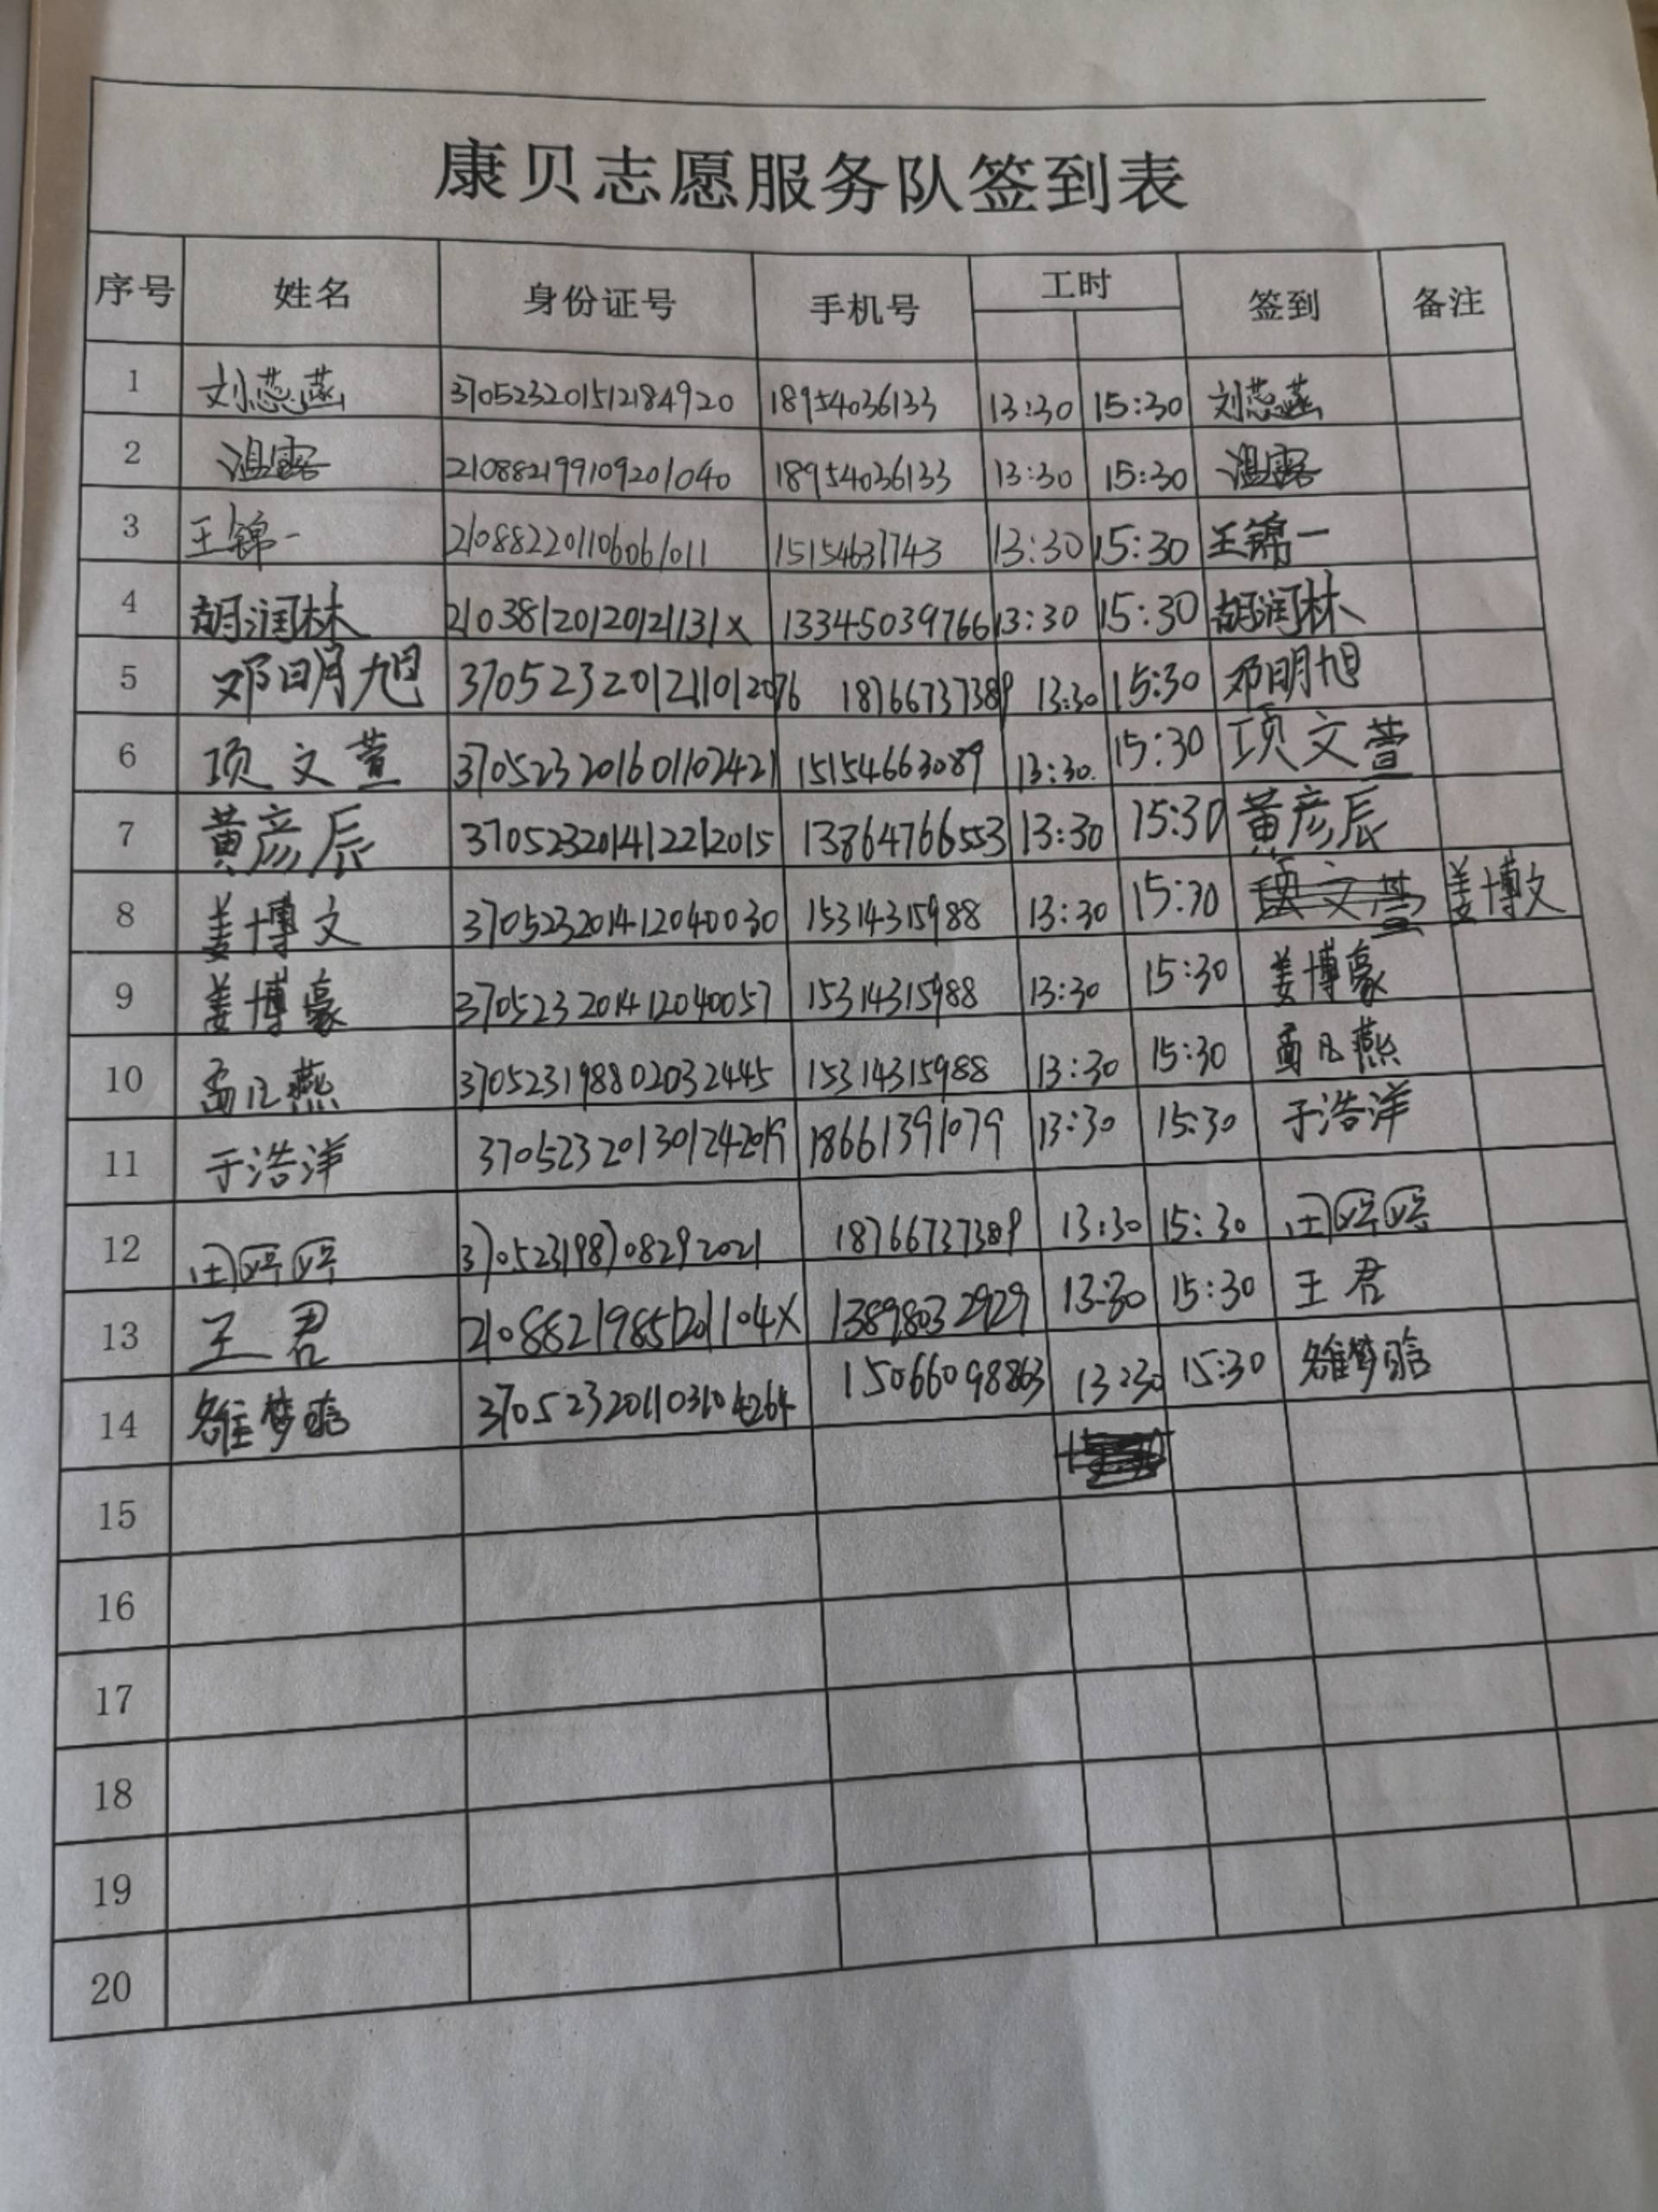 康贝志愿服务队签到表
序号 姓名 身份证号 手机号 工时 签到 备注
1 刘蕊菡 370523201512184920 18954036133 13:30 15:30 刘蕊菡
2 温露 210882199109201040 18954036133 13:30 15:30 温露
3 王锦一 210882201106061011 15154631743 13:30 15:30 王锦一
4 胡润林 21038120120121131X 13345039766 13:30 15:30 胡润林
5 邓明旭 370523201211012076 18766737389 13:30 15:30 邓明旭
6 项文萱 370523201601102421 15154663089 13:30 15:30 项文萱
7 黄彦辰 370523201412212015 13864766553 13:30 15:30 黄彦辰
8 姜博文 370523201412040030 15314315988 13:30 15:30 姜博文
9 姜博豪 370523201412040057 15314315988 13:30 15:30 姜博豪
10 孟凡燕 370523198802032445 15314315988 13:30 15:30 孟凡燕
11 于浩洋 370523201301242019 18661391079 13:30 15:30 于浩洋
12 田婷婷 370523198708292021 18766737389 13:30 15:30 田婷婷
13 王君 21088219851201104X 13898032929 13:30 15:30 王君
14 雒梦晗 370523201103104264 15066098863 13:30 15:30 雒梦晗
15
16
17
18
19
20